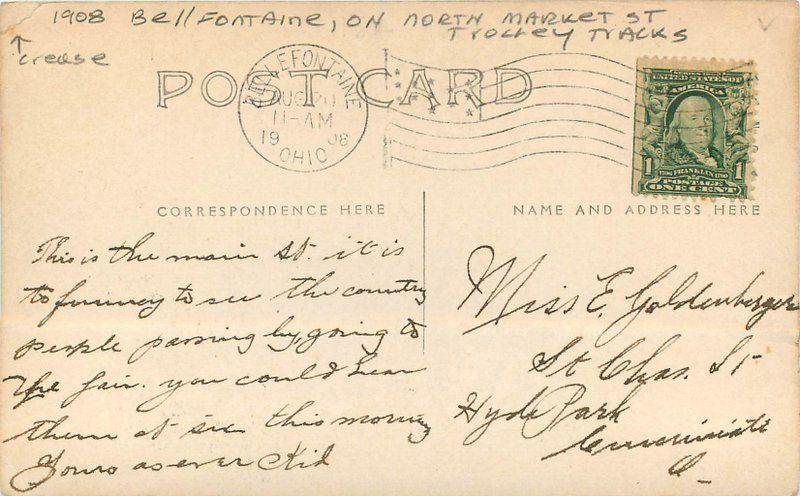 1908 Bellfontaine, on North Market St
Trolley Tracks
crease
POST CARD
BELLEFONTAINE
AUG 20
11-AM
1908
OHIO
SERIES 1902
UNITED STATES OF
AMERICA
1
1
1706 FRANKLIN 1790
POSTAGE
ONE CENT
CORRESPONDENCE HERE
This is the main St. it is
to funney to see the country
people passing by, going to
the fair. you could hear
them at six this morning
Yours as ever Kid
NAME AND ADDRESS HERE
Miss E. Goldenberger
St Chas. St
Hyde Park
Cincinnati
O_